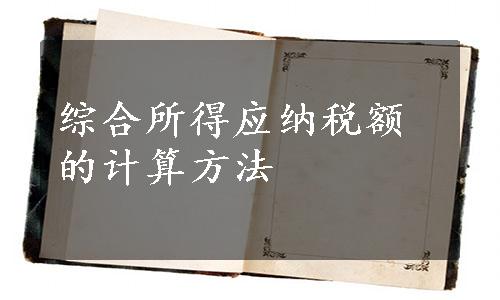 综合所得应纳税额
的计算方法